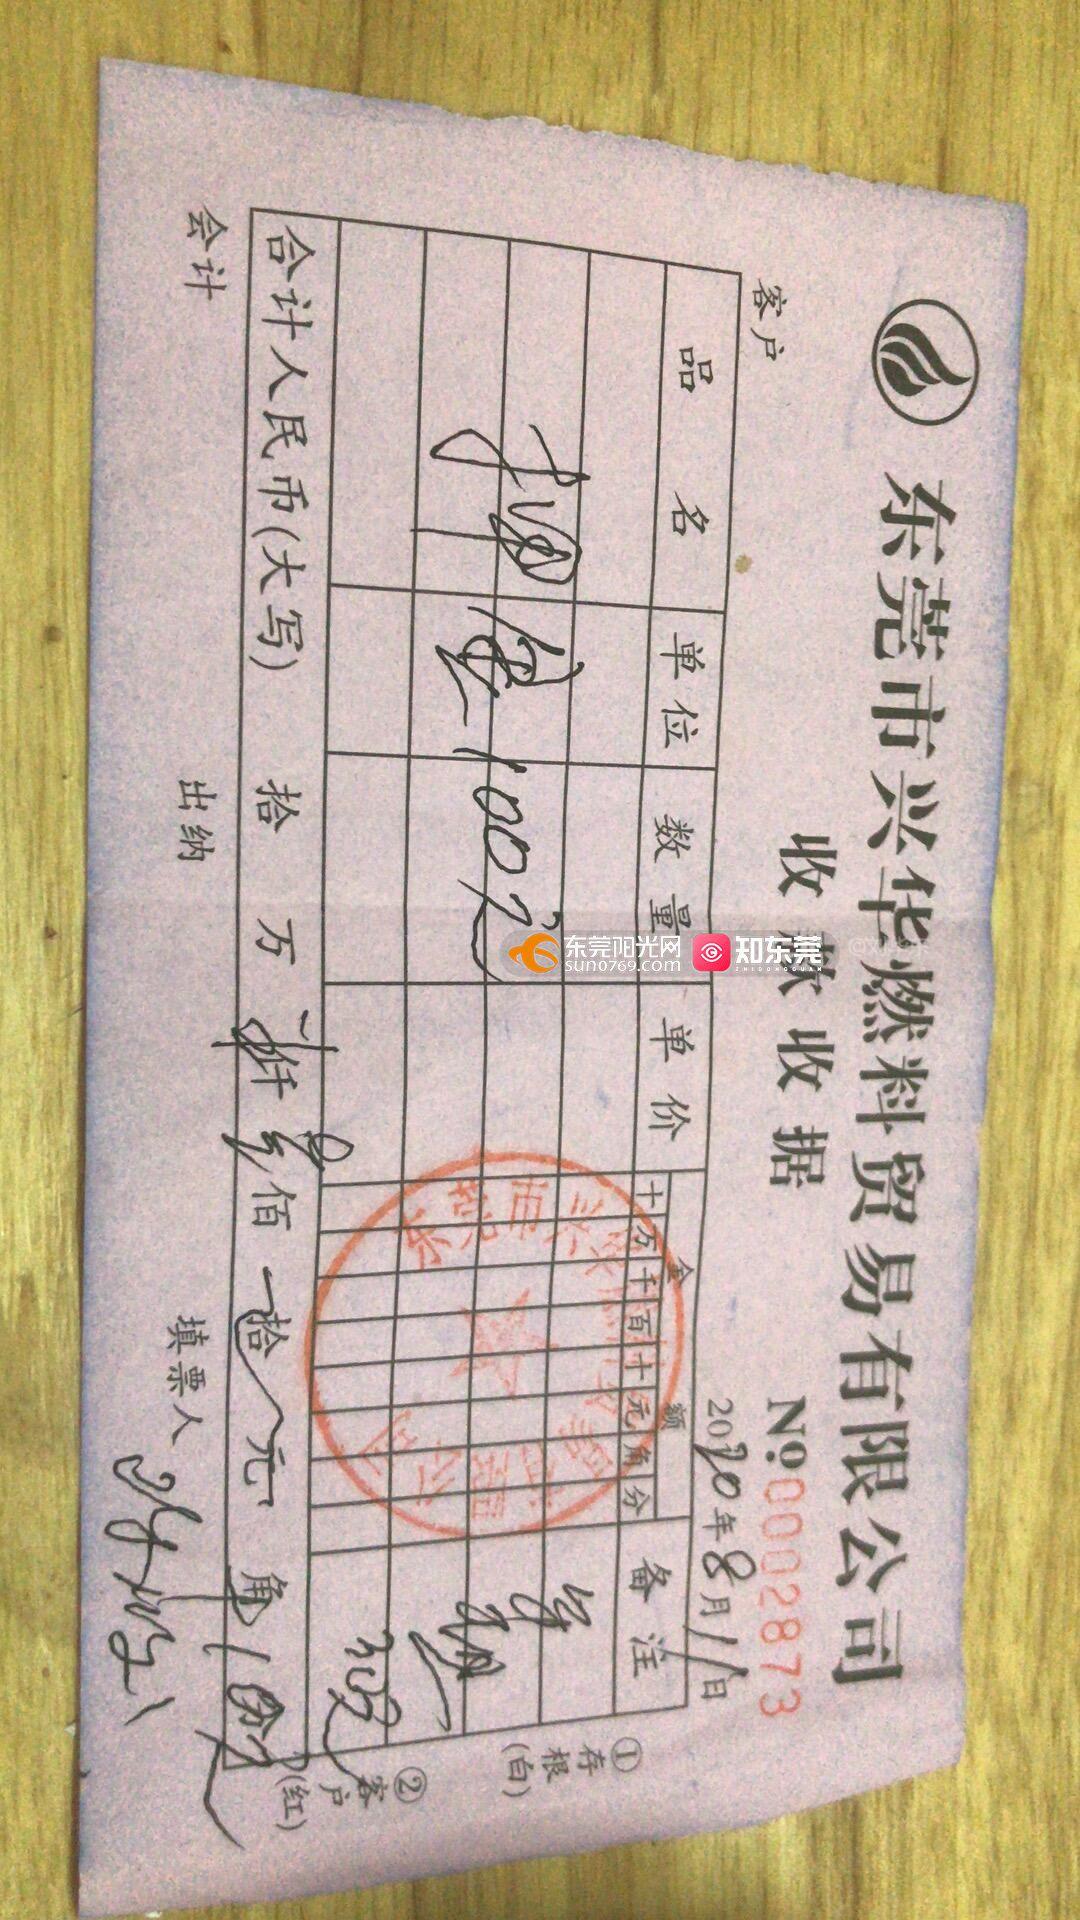 东莞市兴华燃料贸易有限公司
收款收据
No 0002873
客户
2020年8月11日
品名 单位 数量 单价 金额 备注
十万千百十元角分
押金 100元
合计人民币(大写) 拾 万 仟 佰 拾 元 角 分
会计 出纳 填票人
①存根(白)
②客户(红)
东莞阳光网
sun0769.com
知东莞
ZHIDONGGUAN